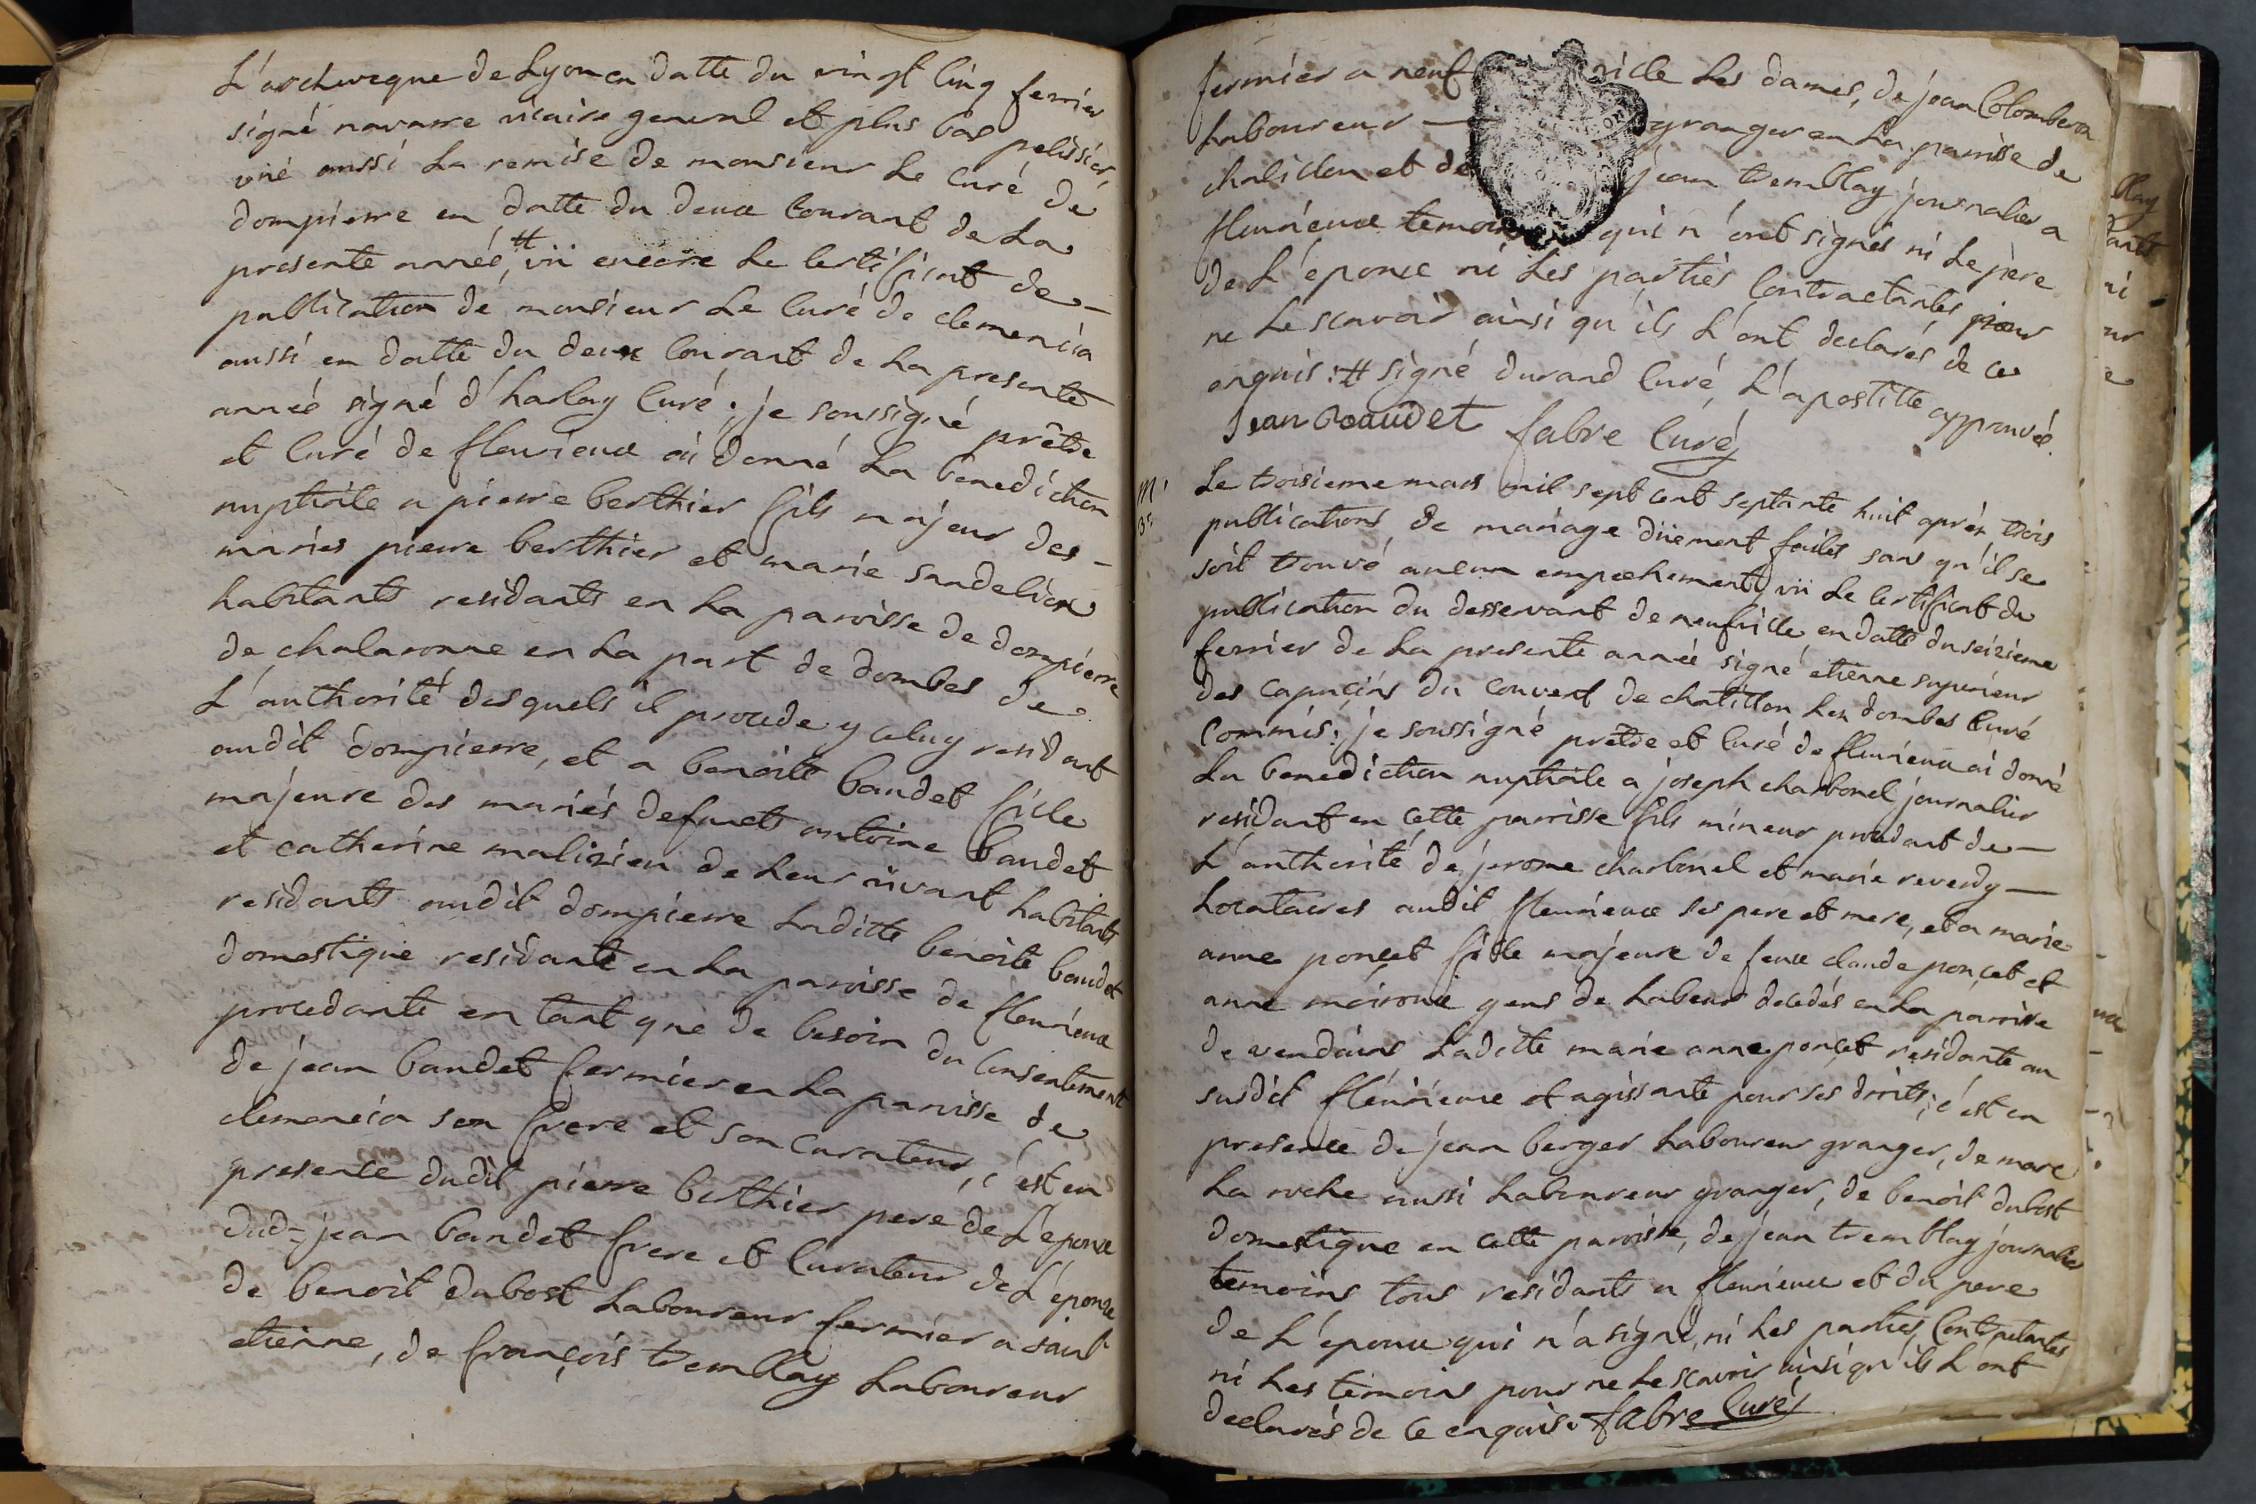 L'archeveque de Lyon en datte du vingt cinq fevrier
signé navarre vicaire general et plus bas pelissier,
vüe aussi La remise de monsieur Le curé de
dompierre en datte du deux Courant de La
presente anneé,# vü encore Le Certificat de –
publication de monsieur Le Curé de clemencia
aussi en datte du deux Courant de La presente
anneé signé d'harlay Curé; je soussigné prêtre
et Curé de fleurieux ai donné La benediction
nuptiale a pierre berthier fils majeur des –
mariés pierre berthier et marie sandelion
habitants residants en La paroisse de dompierre
de chalaronne en La part de dombes de
L'authorité desquels il procede y celuy residant
audit dompierre, et a benoite baudet fille
majeure des mariés defunts antoine baudet
et catherine malizieu de Leur vivant habitants
residants audit dompierre Laditte benoite baudet
domestique residante en La paroisse de fleurieux
procedante en tant que de besoin du Consentement
de jean baudet fermier en La paroisse de
clemencia son frere et son curateur, c'est en
presence dudit pierre berthier pere de L'epoux
dud= jean baudet frere et Curateur de L'epouse
de benoit dubost Laboureur fermier a saint
etienne, de françois tremblay Laboureur
fermier a neuf ville Les dames, de jean Colomberon
Laboureur — granger en La paroisse de
chatillon et de jean tremblay journalier a
fleurieux temoins qui n'ont signés ni Le pere
de L'epoux ni Les parties Contractantes pour
ne Le scavoir ainsi qu'ils L'ont declarés de ce
enquis :# signé durand Curé, L'apostille approuvée.
Jean Baaudet fabre Curé
M.
Le troisieme mars mil sept cent septante huit après trois
publications de mariage düement faites sans qu'il se
soit trouvé aucun empechement, vü Le Certificat de
publication du desservant de neufville en datte du seizieme
fevrier de La presente année signé etienne superieur
des capucins du couvent de chatillon Les dombes Curé
Commis; je soussigné prêtre et Curé de fleurieux ai donné
La benediction nuptiale a joseph charbonel journalier
residant en Cette parroisse fils mineur procedant de —
L'authorité de jerome charbonel et marie reverdy —
Locataires audit fleurieux ses pere et mere, et a marie
anne ponçet fille majeure de feux claude ponçet et
anne moiroux gens de Labeur decedés en La parroisse
de vendains Laditte marie anne ponçet residante au
susdit fleurieux et agissante pour ses droits; c'est en
presence de jean berger Laboureur granger, de marc
La roche aussi Laboureur granger, de benoit dubost
domestique en cette paroisse, de jean tremblay journalier
temoins tous residants a fleurieux et du pere
de L'epoux qui n'a signé, ni Les parties Contractantes
ni Les temoins pour ne Le scavoir ainsi qu'ils L'ont
declarés de ce enquis. fabre Curé